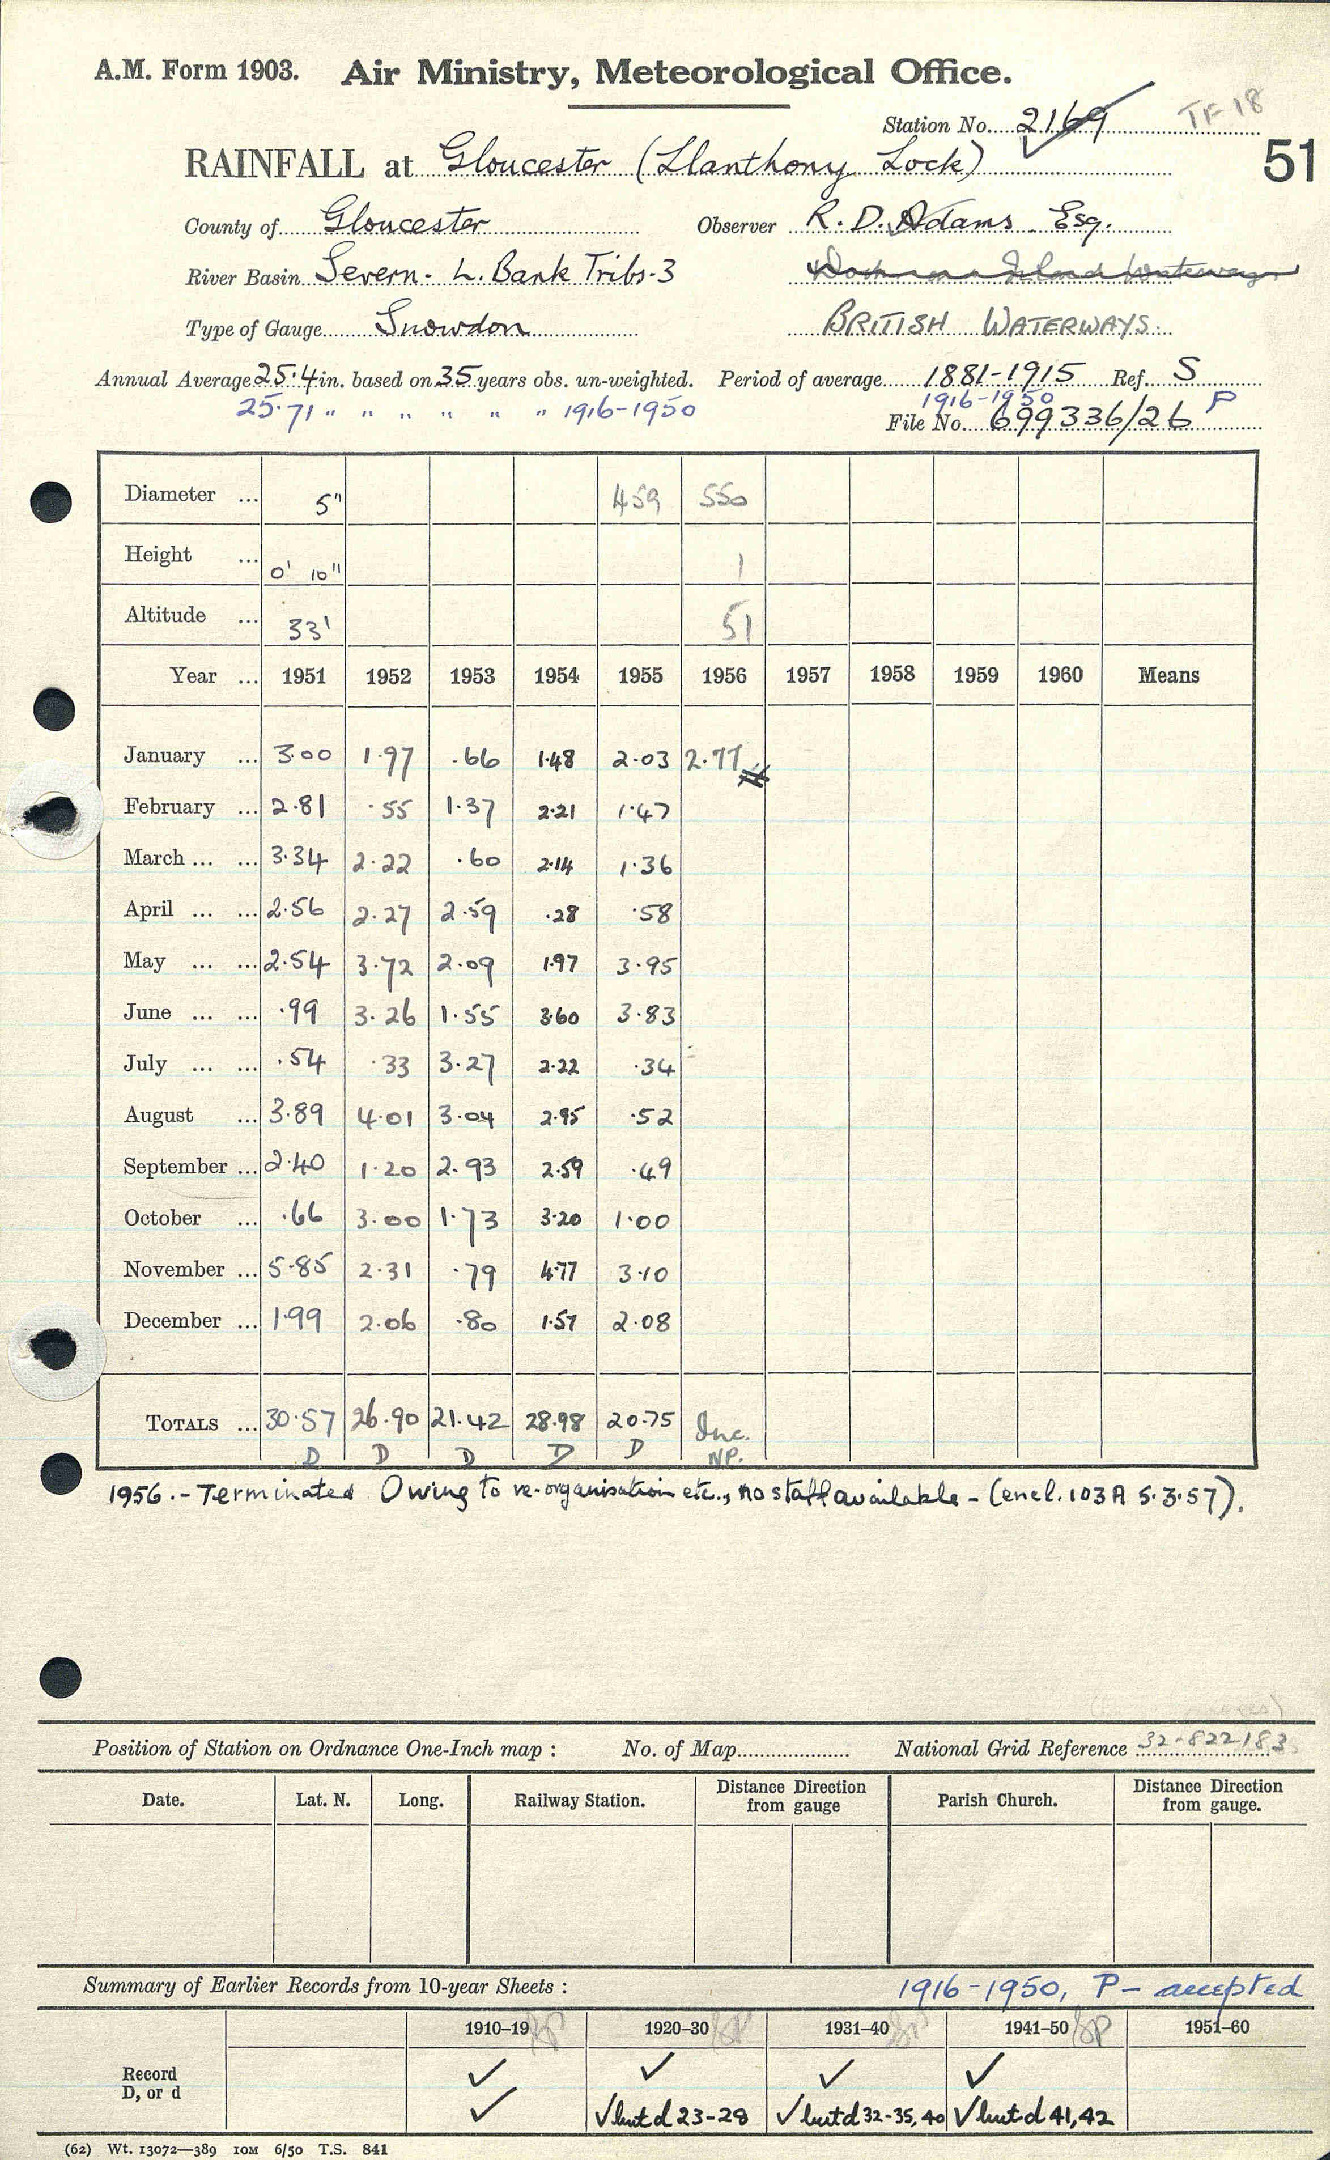 A.M. Form 1903. Air Ministry, Meteorological Office.
Station No. 2169 TF 18
RAINFALL at Gloucester (Llanthony Lock) 51
County of Gloucester Observer R. D. Adams Esq.
River Basin Severn - L. Bank Tribs - 3 Docks and Inland Waterways
Type of Gauge Snowdon BRITISH WATERWAYS.
Annual Average 25.4 in. based on 35 years obs. un-weighted. Period of average 1881-1915 Ref. S
25.71 " " " " " " 1916-1950 1916-1950 P
File No. 699336/26
Diameter ... 5" 459 550
Height ... 0' 10" 1
Altitude ... 33' 51
Year ... 1951 1952 1953 1954 1955 1956 1957 1958 1959 1960 Means
January ... 3.00 1.97 .66 1.48 2.03 2.77
February ... 2.81 .55 1.37 2.21 1.47
March ... ... 3.34 2.22 .60 2.14 1.36
April ... ... 2.56 2.27 2.59 .28 .58
May ... ... 2.54 3.72 2.09 1.97 3.95
June ... ... .99 3.26 1.55 3.60 3.83
July ... ... .54 .33 3.27 2.22 .34
August ... 3.89 4.01 3.04 2.95 .52
September ... 2.40 1.20 2.93 2.59 .49
October ... .66 3.00 1.73 3.20 1.00
November ... 5.85 2.31 .79 4.77 3.10
December ... 1.99 2.06 .80 1.57 2.08
TOTALS ... 30.57 26.90 21.42 28.98 20.75 Inc.
D D D D D NP.
1956. - Terminated Owing to re-organisation etc., no staff available - (encl. 103A 5.3.57).
Position of Station on Ordnance One-Inch map : No. of Map National Grid Reference 32-822183
Date. Lat. N. Long. Railway Station. Distance Direction from gauge Parish Church. Distance Direction from gauge.
Summary of Earlier Records from 10-year Sheets : 1916-1950, P - accepted
1910–19 1920–30 1931–40 1941–50 1951–60
Record ✓ ✓ ✓ ✓
D, or d ✓ ✓ but d 23-28 ✓ but d 32-35, 40 ✓ but d 41, 42
(62) Wt. 13072—389 10M 6/50 T.S. 841